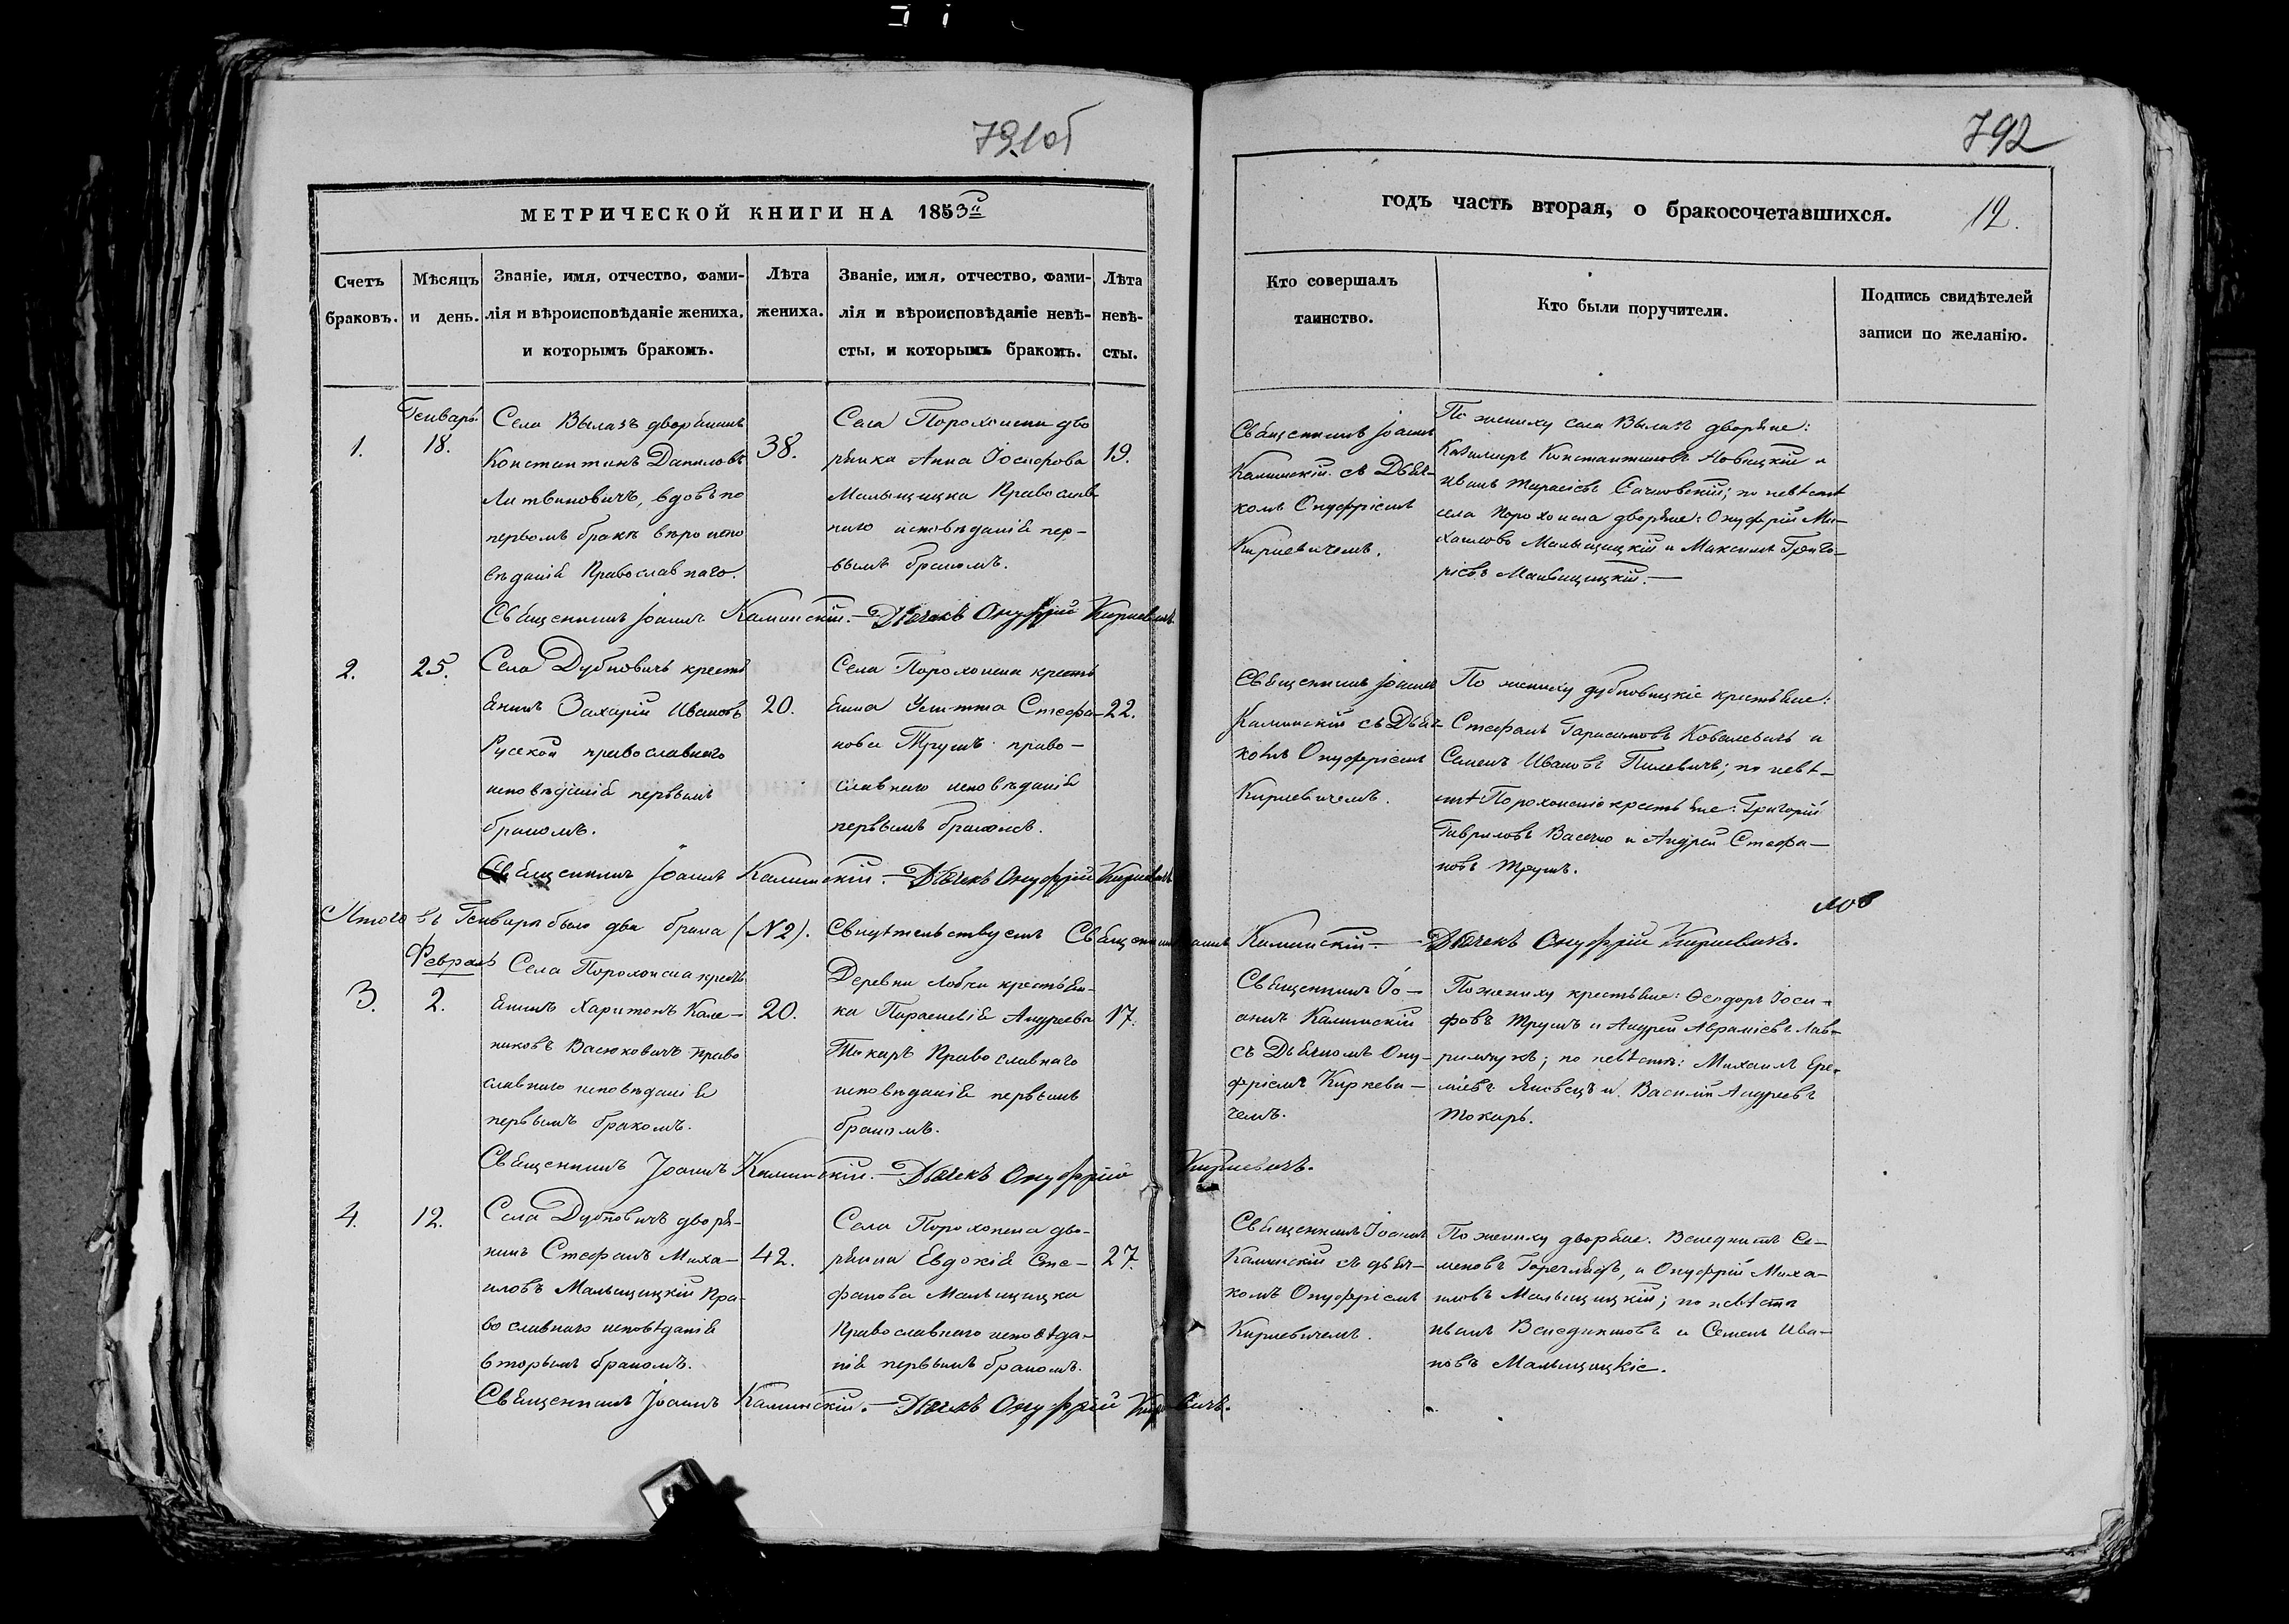 791об
792
МЕТРИЧЕСКОЙ КНИГИ НА 1853й
годъ часть вторая, о бракосочетавшихся.
12.
Счетъ браковъ.
Мѣсяцъ и день.
Званіе, имя, отчество, фами-
лія и вѣроисповѣданіе жениха,
и которымъ бракомъ.
Лѣта
жениха.
Званіе, имя, отчество, фами-
лія и вѣроисповѣданіе невѣ-
сты, и которымъ бракомъ.
Лѣта
невѣ-
сты.
Кто совершалъ
таинство.
Кто были поручители.
Подпись свидѣтелей
записи по желанію.
1.
Генварь
18.
Села Вылазъ дворянинъ
Константинъ Даниловъ
Литвиновичъ, вдовъ по
первомъ бракѣ вѣроиспо
вѣданія Православнаго.
38.
Села Порохонска дво
рянка Анна Іосифова
Малыщицка Православ
наго исповѣданія пер-
вымъ бракомъ.
19.
Священникъ Іоаннъ
Калинскій съ Дьяч-
комъ Онуфріемъ
Киркевичемъ.
По жениху села Вылазъ дворяне:
Казимиръ Константиновъ Новицкій и
Иванъ Тарасіевъ Сачковскій; по невѣстѣ
села Порохонска дворяне: Онуфрій Ми-
хаиловъ Малыщицкій и Максимъ Григо-
ріевъ Малыщицкій.—
Священникъ Іоаннъ Калинскій.— Дьячекъ Онуфрій Киркевичъ.
2.
25.
Села Дубновичъ кресть
янинъ Захарій Ивановъ
Русской православнаго
исповѣданія первымъ
бракомъ.
20.
Села Порохонска кресть
янка Стефа-
нова Трушъ право-
славнаго исповѣданія
первымъ бракомъ.
22.
Священникъ Іоаннъ
Калинскій съ Дьяч-
комъ Онуфріемъ
Киркевичемъ.
По жениху дубновицкіе крестьяне:
Стефанъ Гарасимовъ Ковалевичъ и
Семенъ Ивановъ Пилевичъ; по невѣ-
стѣ Порохонскіе крестьяне: Григорій
Гавриловъ Васечко и Андрей Стефа-
новъ Трушъ.
Священникъ Іоаннъ Калинскій.— Дьячекъ Онуфрій Киркевичъ
Итого въ Генварѣ было два брака (№2). Свидѣтельствуемъ Священникъ Іоаннъ Калинскій.— Дьячекъ Онуфрій Киркевичъ.
3.
Февраль
2.
Села Порохонска кресть
янинъ Харитонъ Кале-
никовъ Васюковичъ право
славнаго исповѣданія
первымъ бракомъ.
20.
Деревни Лобчи крестьян-
ка Параскевія Андреева
Токарь Православнаго
исповѣданія первымъ
бракомъ.
17.
Священникъ Іо-
аннъ Калинскій
съ Дьячкомъ Ону-
фріемъ Киркеви-
чемъ.
По жениху крестьяне: Ѳеодоръ Іоси-
фовъ Трушъ и Андрей Авраміевъ Лав-
ринчукъ; по невѣстѣ: Михаилъ Ере-
міевъ Яковецъ и Василій Андреевъ
Токарь.
Священникъ Іоаннъ Калинскій.— Дьячекъ Онуфрій Киркевичъ.
4.
12.
Села Дубновичъ дворя-
нинъ Стефанъ Миха-
иловъ Малыщицкій Пра-
вославнаго исповѣданія
вторымъ бракомъ.
42.
Села Порохонска дво-
рянка Евдокія Сте-
фанова Малыщицка
Православнаго исповѣда-
нія первымъ бракомъ.
27.
Священникъ Іоаннъ
Калинскій съ дьяч-
комъ Онуфріемъ
Киркевичемъ.
По жениху дворяне: Венедиктъ Се-
меновъ и Онуфрій Миха-
иловъ Малыщицкій; по невѣстѣ
Иванъ Венедиктовъ и Семенъ Ива-
новъ Малыщицкіе.
Священникъ Іоаннъ Калинскій.— Дьячекъ Онуфрій Киркевичъ.